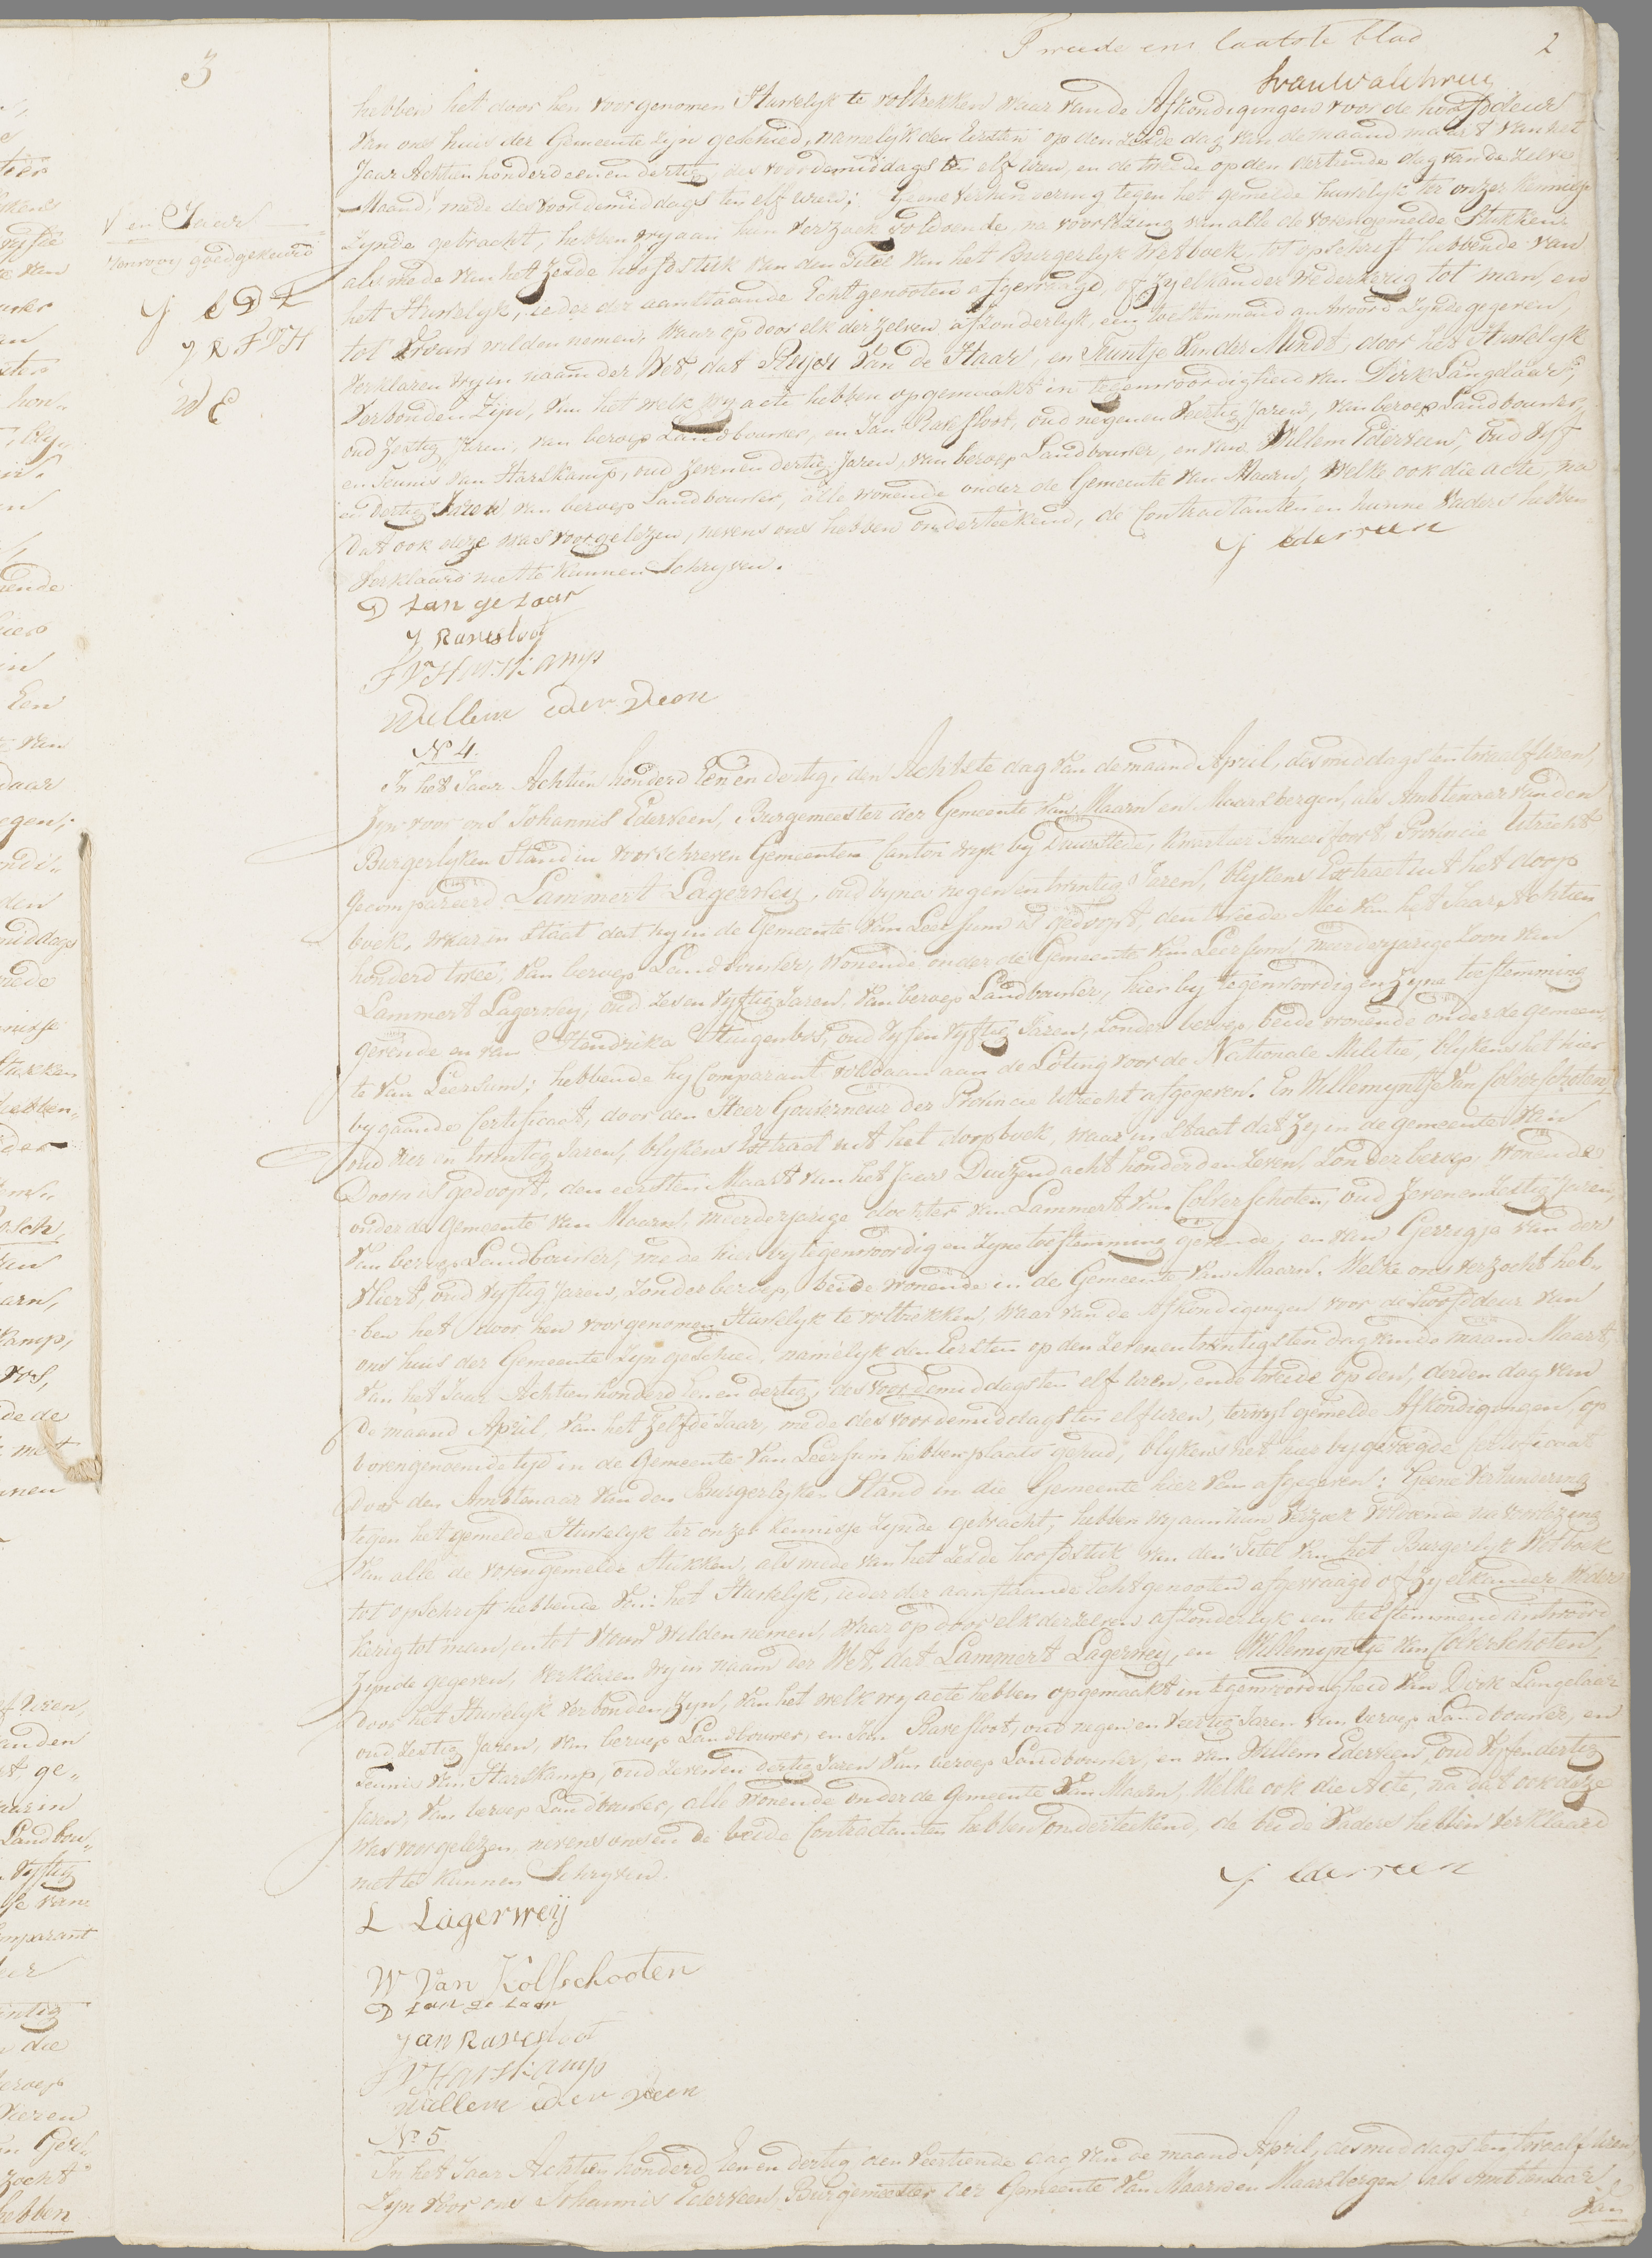 3
Tweede en laatste blad
2
hebben het door hen voorgenomen Huwelyk te voltrekken waar van de Afkondigingen voor de hoofddeur
van ons huis der Gemeente zijn geschied, namelyk den Eersten op den zesde dag van de maand maart van het
Jaar Achtien honderd een en dertig, des voordemiddags ten elf uren, en de tweede op den dertiende dag van de zelve
Maand, mede des voordemiddags ten elf uren; Geene verhindering tegen het gemelde huwelyk ter onzer kennisse
Zynde gebracht, hebben wy aan hun verzoek voldoende, na voorlezing van alle de vorengemelde Stukken
als mede van het Zesde hoofdstuk van den Titel van het Burgerlyk Wetboek, tot opschrift hebbende van
het Huwelyk, ieder der aanstaande Echtgenooten afgevraagd, of zy elkander wederkerig tot man, en
tot Vrouw wilden nemen, waar op door elk der zelven afzonderlyk, een toestemmend antwoord Zynde gegeven,
verklaren wy in naam der Wet, dat Reijer van de Haar, en Teuntje van der Mindt, door het Huwelyk
Verbonden Zijn, van het welk wy acte hebben opgemaakt in tegenwoordigheid van Dirk Langelaar,
oud Zestig Jaren, van beroep Landbouwer, en Jan Ravesloot, oud negen en Veertig Jaren, van beroep Landbouwer,
en Teunis van Harskamp, oud Zeven en dertig Jaren, van beroep Landbouwer, en van Willem Ederveen, oud vyf
en dertig Jaren van beroep Landbouwer, alle wonende onder de Gemeente van Maarn, welke ook die acte, na
dat ook deze was voorgelezen, nevens ons hebben onderteekend, de Contractanten en hunne Vaders hebben
Verklaard niet te kunnen Schryven.
en Jaar
goedgekeurd
J E D L
J R T V H
W E
J Ederveen
D Langelaar
J Ravesloot
T V Harskamp
Willem Ederveen
N 4.
In het Jaar Achtien honderd Een en dertig, den Achtste dag van de maand April, des middags ten twaalf Uren,
Zyn voor ons Johannis Ederveen, Burgemeester der Gemeente van Maarn en Maarsbergen, als Ambtenaar van den
Burgerlyken Stand in voorschreven Gemeenten Canton wyk by Duurstede, Kwartier Amersfoort Provincie Utrecht
Gecompareerd Lammert Lagerwey, oud byna negen en twintig Jaren, blykens Extract uit het doop
boek, waar in Staat dat hy in de Gemeente van Leersum is gedoopt, den tweede Mei van het Jaar Achtien
honderd twee, van beroep Landbouwer, wonende onder de Gemeente van Leersum, meerderjarige Zoon van
Lammert Lagerwey, oud Zes en Vyftig Jaren, van beroep Landbouwer, hier by tegenwoordig en Zyne toestemming
gevende en van Hendrika Hugenbos, oud Vyf en Vyftig Jaren, Zonder beroep, beide wonende onder de gemeen„
te van Leersum; hebbende hy Comparant voldaan aan de Loting voor de Nationale Militie, blykens het hier
by gaande Certificaat, door den Heer Gouverneur der Provincie Utrecht afgegeven. En Willemyntje van Colverschoten,
oud vier en twintig Jaren, blykens Extract uit het doopboek, waar in Staat dat Zy in de gemeente van
Doorn is gedoopt, den eersten Maart van het Jaar Duizend acht honderd en Zeven, Zonder beroep, wonende
onder de Gemeente van Maarn, meerderjarige dochter van Lammert van Colverschoten, oud Zeven en Zestig Jaren,
Van beroep Landbouwer, mede hier by tegenwoordig en Zyne toestemming gevende, en van Gerrigje van der
Vliert, oud Vyftig Jaren, Zonder beroep, beide wonende in de Gemeente van Maarn. Welke ons verzocht heb„
ben het door hen voorgenomen Huwelyk te voltrekken, waar van de Afkondigingen voor de hoofddeur van
ons huis der Gemeente Zyn geschied, namelyk den Eersten op den Zeven en twintigsten dag van de maand Maart,
van het Jaar Achtien honderd een en dertig, des voordemiddags ten elf uren, en de tweede op den, derden dag van
de maand April, van het Zelfde Jaar, mede des voordemiddags ten elf uren, terwyl gemelde Afkondigingen, op
vorengenoemde tyd in de Gemeente van Leersum hebben plaats gehad, blykens het hier bygevoegde Certificaat
Door den Ambtenaar van den Burgerlyken Stand in die Gemeente hier van afgegeven: Geene verhindering
tegen het gemelde Huwelyk ter onzer kennisse Zynde gebracht, hebben wy aan hun verzoek voldoende na voorlezing
van alle de vorengemelde Stukken, als mede van het Zesde hoofdstuk van den Titel van het Burgerlyk Wetboek
tot opschrift hebbende van het Huwelyk, ieder der aanstaande Echtgenooten afgevraagd of Zy elkander Weder
kerig tot man, en tot Vrouw wilden nemen, waar op door elk derzelven afzonderlyk een toestemmend antwoord
Zynde gegeven, verklaren wy in naam der Wet, dat Lammert Lagerwey, en Willemyntje van Colverschoten,
door het Huwelyk verbonden Zyn, van het welk wy acte hebben opgemaakt in tegenwoordigheid van Dirk Langelaar
oud Zestig Jaren, van beroep Landbouwer, en Jan Ravesloot, oud negen en veertig Jaren van beroep Landbouwer, en
Teunis van Harskamp, oud Zeven en dertig Jaren van beroep Landbouwer, en van Willem Ederveen, oud Vyf en dertig
Jaren, van beroep Landbouwer, alle wonende onder de Gemeente van Maarn, Welke ook die Acte, na dat ook deze
was voorgelezen, nevens ons en de beide Contractanten hebben onderteekend, de beide Vaders hebben verklaard
niet te kunnen Schryven.
J Ederveen
L Lagerweij
W Van Kolfschooten
D Langelaar
Jan Ravesloot
T V Harskamp
Willem Ederveen
No 5
In het Jaar Achtien honderd Een en dertig den Veertiende dag van de maand April, des middags ten twaalf Uren,
Zyn voor ons Johannis Ederveen, Burgemeester der Gemeente van Maarn en Maarsbergen als Ambtenaar
Van